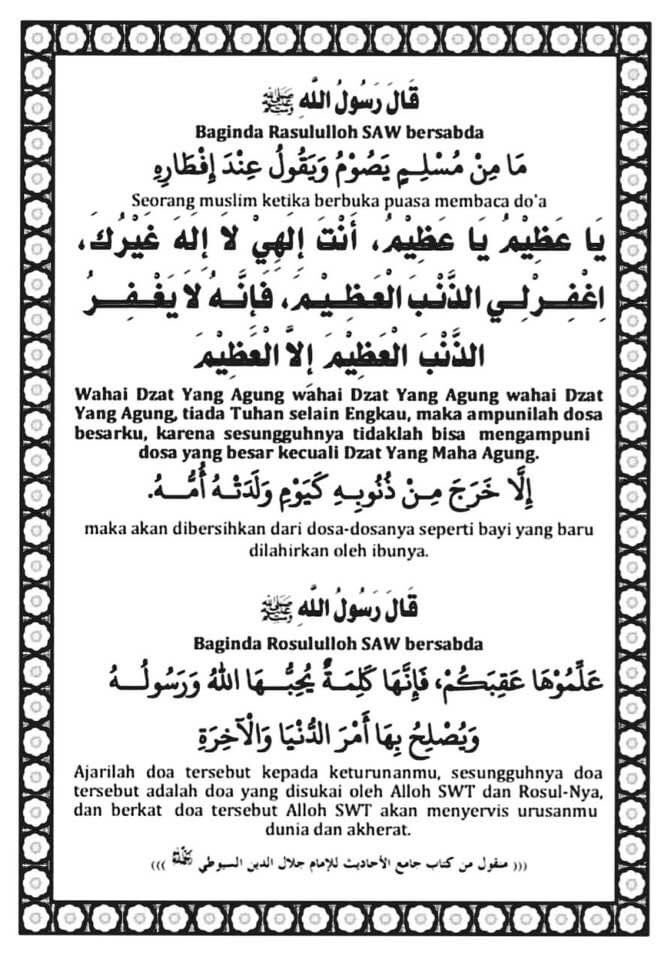 قَالَ رَسُولُ اللَّهِ ﷺ
Baginda Rasululloh SAW bersabda
مَا مِنْ مُسْلِمٍ يَصُوْمُ وَيَقُولُ عِنْدَ إِفْطَارِهِ
Seorang muslim ketika berbuka puasa membaca do'a
يَا عَظِيْمُ يَا عَظِيْمُ، أَنْتَ إِلَهِيْ لَا إِلَهَ غَيْرُكَ،
اِغْفِرْلِي الذَّنْبَ الْعَظِيْمَ، فَإِنَّهُ لَا يَغْفِرُ
الذَّنْبَ الْعَظِيْمَ إِلاَّ الْعَظِيْمَ
Wahai Dzat Yang Agung wahai Dzat Yang Agung wahai Dzat
Yang Agung, tiada Tuhan selain Engkau, maka ampunilah dosa
besarku, karena sesungguhnya tidaklah bisa mengampuni
dosa yang besar kecuali Dzat Yang Maha Agung.
إِلَّا خَرَجَ مِنْ ذُنُوبِهِ كَيَوْمِ وَلَدَتْهُ أُمُّهُ.
maka akan dibersihkan dari dosa-dosanya seperti bayi yang baru
dilahirkan oleh ibunya.
قَالَ رَسُولُ اللَّهِ ﷺ
Baginda Rosululloh SAW bersabda
عَلِّمُوْهَا عَقِبَكُمْ، فَإِنَّهَا كَلِمَةٌ يُحِبُّهَا اللهُ وَرَسُولُهُ
وَيُصْلِحُ بِهَا أَمْرَ الدُّنْيَا وَالْآخِرَةِ
Ajarilah doa tersebut kepada keturunanmu, sesungguhnya doa
tersebut adalah doa yang disukai oleh Alloh SWT dan Rosul-Nya,
dan berkat doa tersebut Alloh SWT akan menyervis urusanmu
dunia dan akherat.
((( منقول من كتاب جامع الأحاديث للإمام جلال الدين السيوطي )))